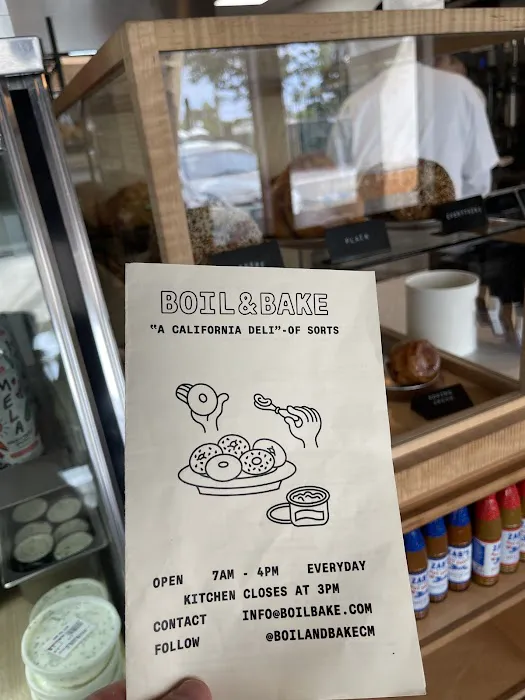 PLAIN
EVERYTHING
BOIL&BAKE
"A CALIFORNIA DELI"-OF SORTS
OPEN 7AM - 4PM EVERYDAY
KITCHEN CLOSES AT 3PM
CONTACT INFO@BOILBAKE.COM
FOLLOW @BOILANDBAKECM